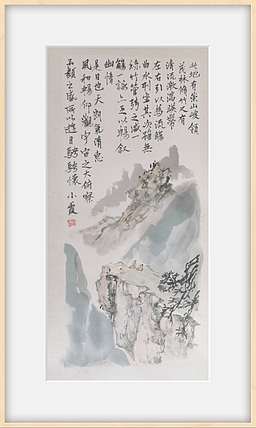 此地有崇山峻領
茂林脩竹又有
清流激湍暎帶
左右引以為流觴
曲水列坐其次雖無
絲竹管弦之盛一
觴一詠亦足以暢叙
幽情
是日也天朗氣清惠
風和暢仰觀宇宙之大俯察
品類之盛所以遊目騁懷 小霞